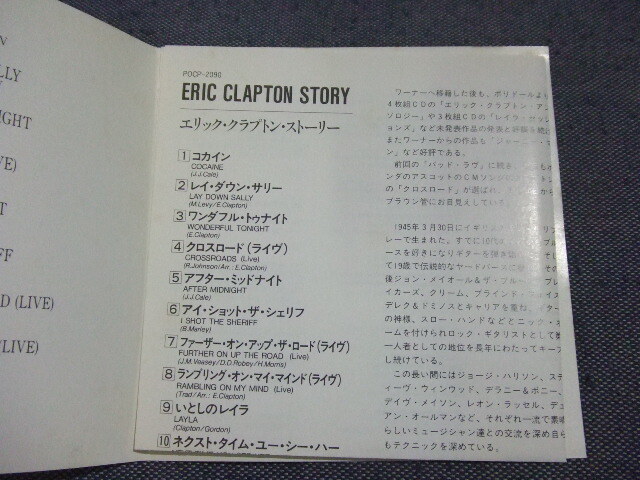 N
LLY
IGHT
VE)
T
FF
D (LIVE)
(LIVE)
POCP-2090
ERIC CLAPTON STORY
エリック・クラプトン・ストーリー
1 コカイン
COCAINE
(J.J.Cale)
2 レイ・ダウン・サリー
LAY DOWN SALLY
(M.Levy/E.Clapton)
3 ワンダフル・トゥナイト
WONDERFUL TONIGHT
(E.Clapton)
4 クロスロード(ライヴ)
CROSSROADS (Live)
(R.Johnson/Arr.:E.Clapton)
5 アフター・ミッドナイト
AFTER MIDNIGHT
(J.J.Cale)
6 アイ・ショット・ザ・シェリフ
I SHOT THE SHERIFF
(B.Marley)
7 ファーザー・オン・アップ・ザ・ロード(ライヴ)
FURTHER ON UP THE ROAD (Live)
(J.M.Veasey/D.D.Robey/H.Morris)
8 ランブリング・オン・マイ・マインド(ライヴ)
RAMBLING ON MY MIND (Live)
(Trad/Arr.:E.Clapton)
9 いとしのレイラ
LAYLA
(Clapton/Gordon)
10 ネクスト・タイム・ユー・シー・ハー
ワーナーへ移籍した後も、ポリドールよ
4枚組CDの「エリック・クラプトン・ア
ソロジー」や3枚組CDの「レイラ・セッ
ョンズ」など未発表作品の
またワーナーからの作品も
ン」など好評である。
前回の「バッド・ラヴ」に
ンダのアスコットのCMソング
の「クロスロード」が選ばれ、
ブラウン管にお目見えしている。
1945年3月30日にイギリス
レーで生まれた。すでに10代
ースを好きになりギターを弾き
て19歳で伝説的なヤードバーズに
後ジョン・メイオール&ザ・ブルー
イカーズ、クリーム、ブラインド・フェイス
デレク&ドミノスとキャリアを重ね、ギター
の神様、スロー・ハンドなどとニック・
ームを付けられロック・ギタリストとして
一人者としての地位を長年にわたってキープ
し続けている。
この長い間にはジョージ・ハリソン、ス
ティーヴ・ウィンウッド、デラニー&ボニー、
デイヴ・メイソン、レオン・ラッセル、デュ
アン・オールマンなど、それぞれ一流で素晴
らしいミュージシャン達との交流を深め自ら
もテクニックを深めている。